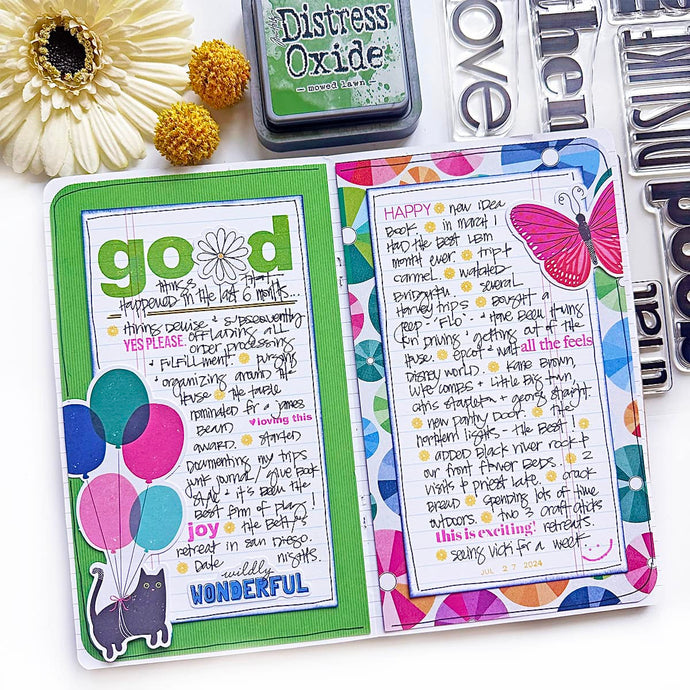 Distress
Oxide
— mowed lawn —
love
then
DISLIKE
good
that
good
things that
happened in the last 6 months...
hiring Denise & subsequently
YES PLEASE. offloading all
order processing
& fulfillment purging
& organizing around the
House the table
nominated for a James
Beard ♥loving this
award. started
documenting my trips
junk journal / glue book
style & it's been the
best form of play!
joy the Betty's
retreat in San Diego.
Date nights.
wildly
WONDERFUL
HAPPY new idea
Book in march I
Had the best LBM
month ever trip to
carmel watched
Bridgerton several
Harvey trips bought a
Jeep "Flo" & Have been Having
fun driving & getting out of the
House. epcot & Walt all the feels
Disney world Kane Brown,
Luke combs & Little Big Town,
chris stapleton & george strait.
new pantry Door the
northern lights - the Best!
added Black river rock to
our front flower beds. 2
visits to priest lake. crack
Bread spending lots of time
outdoors. two 3 craft chicks
this is exciting! retreats.
seeing Vicki for a week.
JUL 27 2024